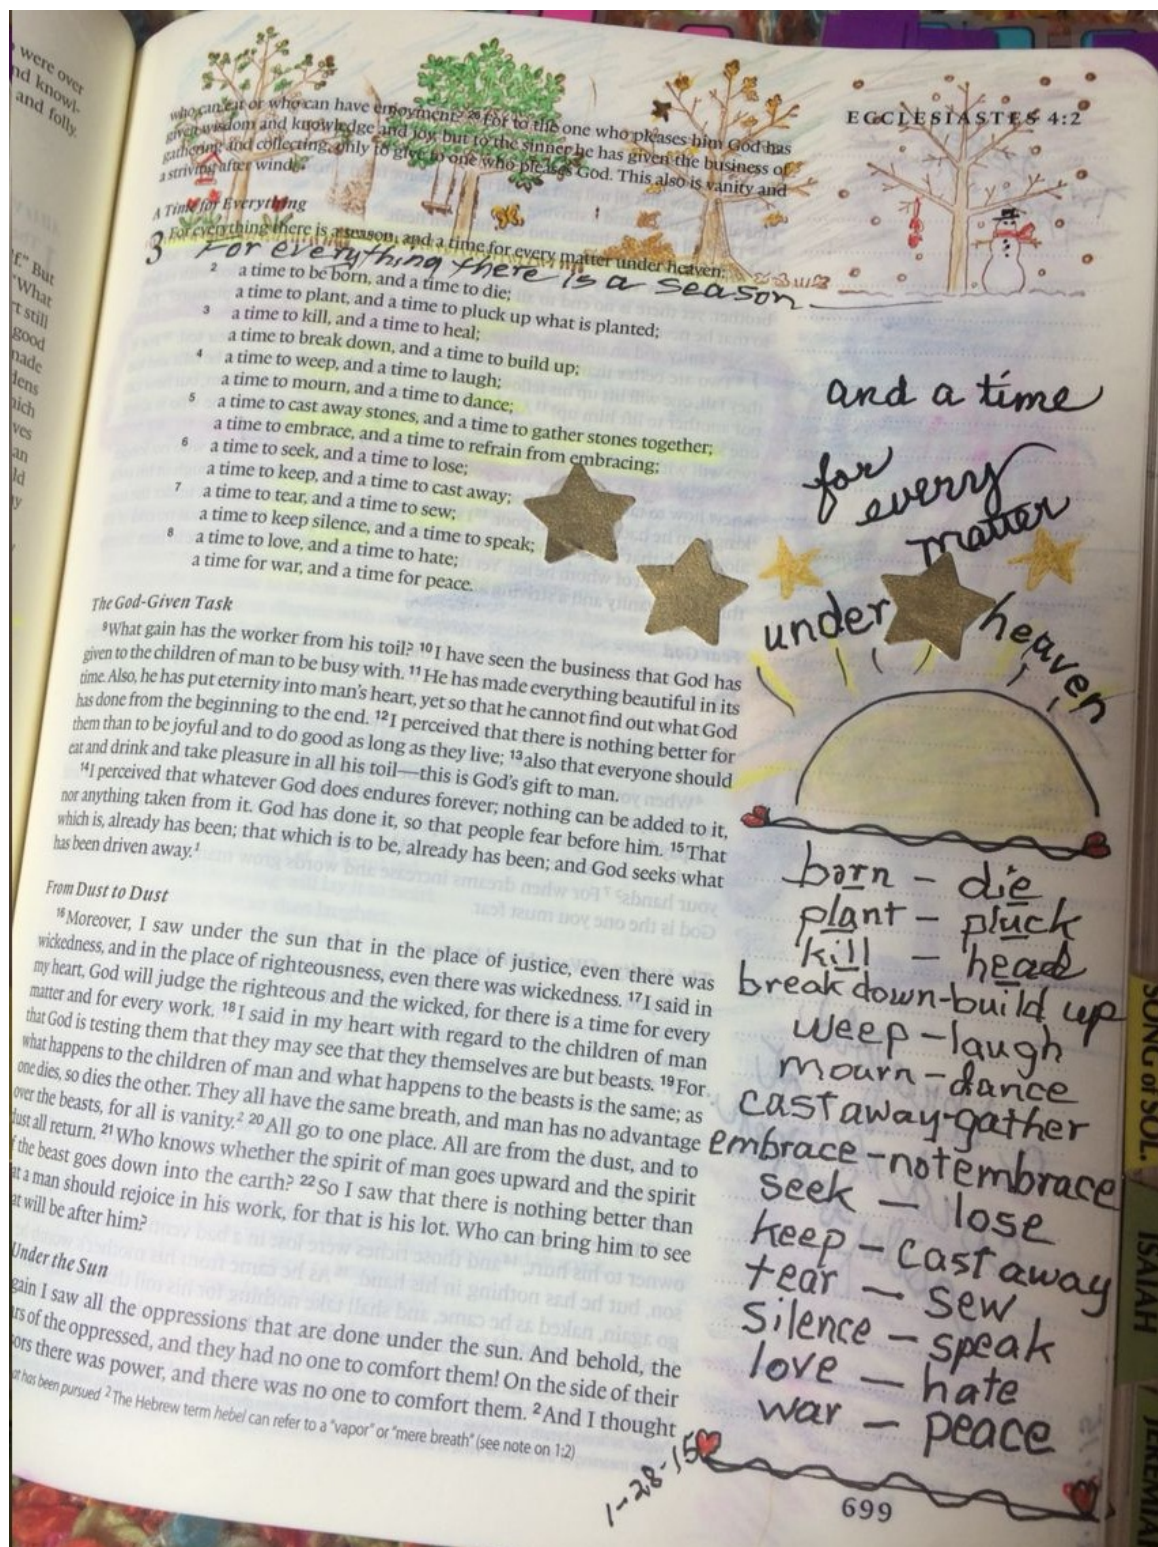 were over
nd knowl-
and folly.
f." But
"What
rt still
good
made
dens
hich
ves
an
ld
y
ECCLESIASTES 4:2
who can eat or who can have enjoyment? 26 For to the one who pleases him God has
given wisdom and knowledge and joy, but to the sinner he has given the business of
gathering and collecting, only to give to one who pleases God. This also is vanity and
a striving after wind.
A Time for Everything
3 For everything there is a season, and a time for every matter under heaven:
For everything there is a season
2 a time to be born, and a time to die;
a time to plant, and a time to pluck up what is planted;
3 a time to kill, and a time to heal;
a time to break down, and a time to build up;
4 a time to weep, and a time to laugh;
a time to mourn, and a time to dance;
5 a time to cast away stones, and a time to gather stones together;
a time to embrace, and a time to refrain from embracing;
6 a time to seek, and a time to lose;
a time to keep, and a time to cast away;
7 a time to tear, and a time to sew;
a time to keep silence, and a time to speak;
8 a time to love, and a time to hate;
a time for war, and a time for peace.
The God-Given Task
9 What gain has the worker from his toil? 10 I have seen the business that God has
given to the children of man to be busy with. 11 He has made everything beautiful in its
time. Also, he has put eternity into man's heart, yet so that he cannot find out what God
has done from the beginning to the end. 12 I perceived that there is nothing better for
them than to be joyful and to do good as long as they live; 13 also that everyone should
eat and drink and take pleasure in all his toil—this is God's gift to man.
14 I perceived that whatever God does endures forever; nothing can be added to it,
nor anything taken from it. God has done it, so that people fear before him. 15 That
which is, already has been; that which is to be, already has been; and God seeks what
has been driven away.1
From Dust to Dust
16 Moreover, I saw under the sun that in the place of justice, even there was
wickedness, and in the place of righteousness, even there was wickedness. 17 I said in
my heart, God will judge the righteous and the wicked, for there is a time for every
matter and for every work. 18 I said in my heart with regard to the children of man
that God is testing them that they may see that they themselves are but beasts. 19 For
what happens to the children of man and what happens to the beasts is the same; as
one dies, so dies the other. They all have the same breath, and man has no advantage
over the beasts, for all is vanity.2 20 All go to one place. All are from the dust, and to
dust all return. 21 Who knows whether the spirit of man goes upward and the spirit
f the beast goes down into the earth? 22 So I saw that there is nothing better than
at a man should rejoice in his work, for that is his lot. Who can bring him to see
at will be after him?
Under the Sun
gain I saw all the oppressions that are done under the sun. And behold, the
rs of the oppressed, and they had no one to comfort them! On the side of their
ors there was power, and there was no one to comfort them. 2 And I thought
at has been pursued 2 The Hebrew term hebel can refer to a "vapor" or "mere breath" (see note on 1:2)
and a time
for
every
matter
under heaven
born - die
plant - pluck
kill - head
break down-build up
weep - laugh
mourn - dance
cast away-gather
embrace - not embrace
seek - lose
keep - cast away
tear - sew
silence - speak
love - hate
war - peace
1-28-15
699
SONG of SOL.
ISAIAH
JEREMIA